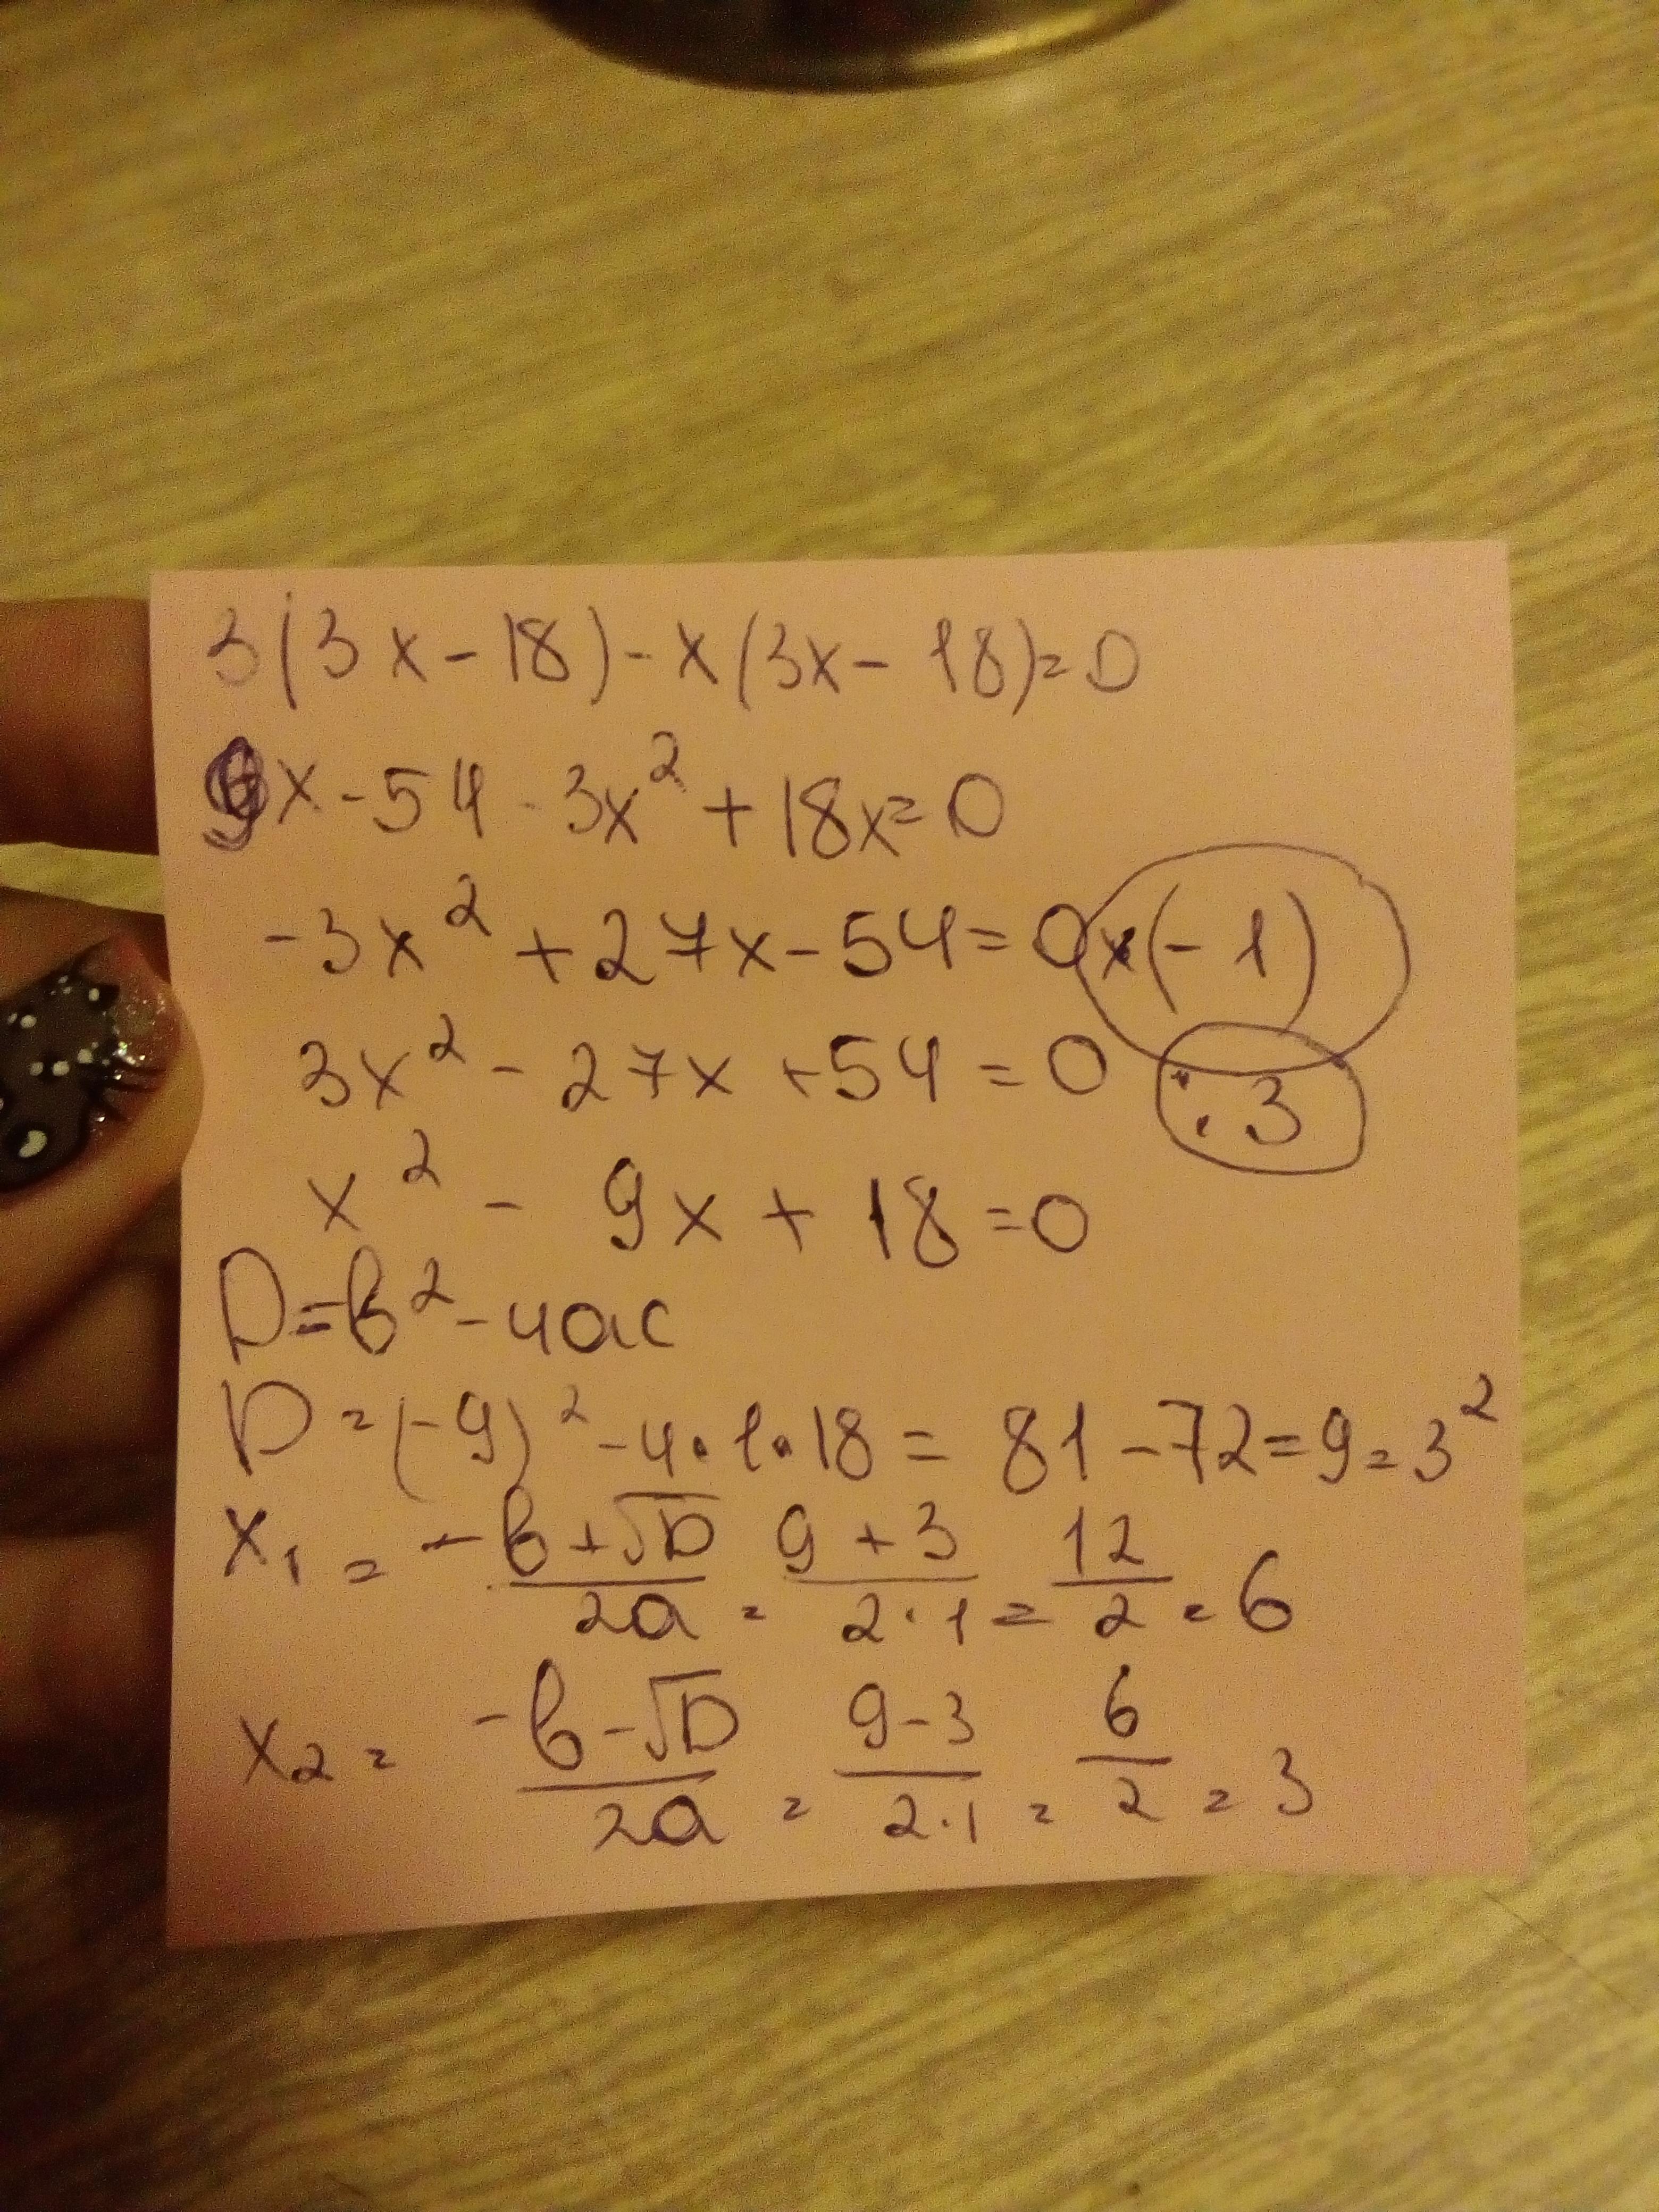 3(3x-18)-x(3x-18)=0
9x-54-3x²+18x=0
-3x²+27x-54=0 x(-1)
3x²-27x+54=0 :3
x²-9x+18=0
D=b²-4ac
D=(-9)²-4·1·18=81-72=9=3²
x₁=(-b+√D)/2a=(9+3)/(2·1)=12/2=6
x₂=(-b-√D)/2a=(9-3)/(2·1)=6/2=3